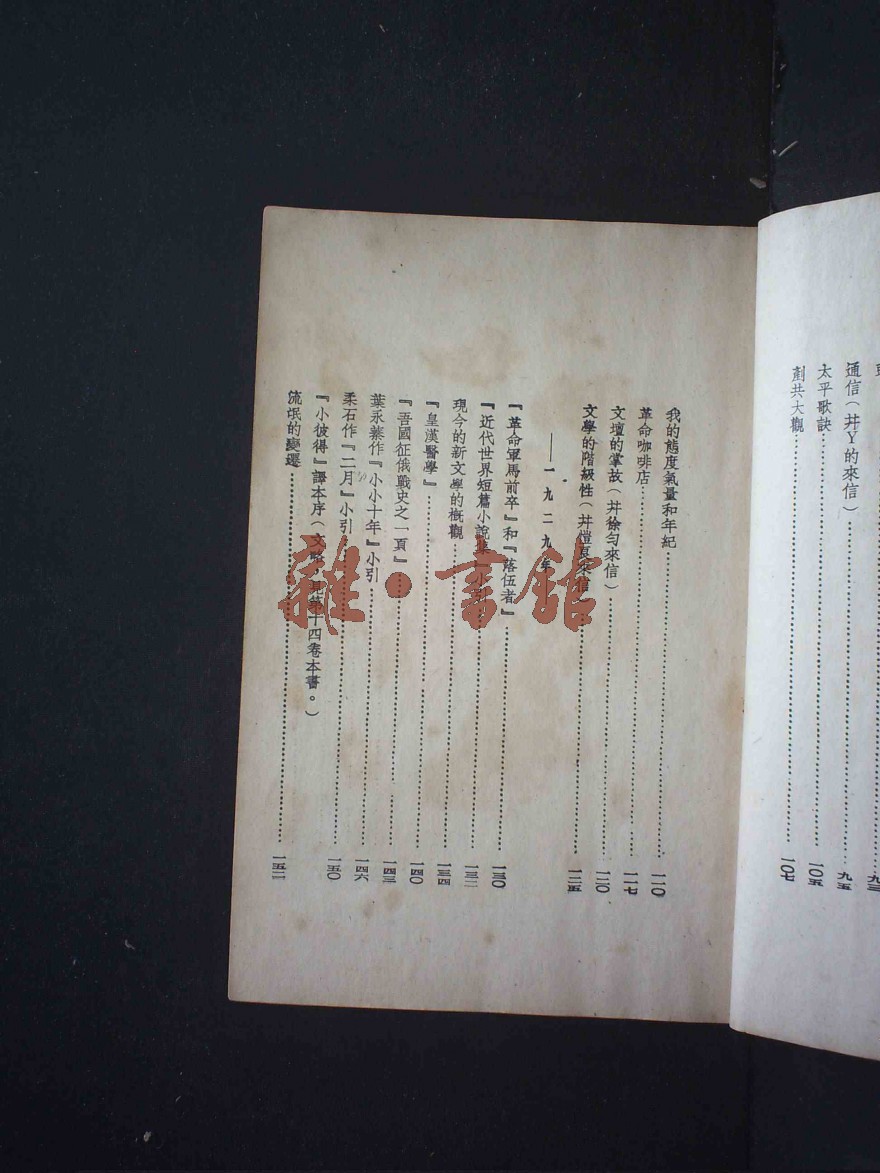 通信（幷Y的來信）……九五
太平歌訣……一〇五
剷共大觀……一〇七
我的態度氣量和年紀……一一〇
革命咖啡店……一一七
文壇的掌故（幷徐匀來信）……一二〇
文學的階級性（幷愷良來信）……一二五
——一九二九年——
『革命軍馬前卒』和『落伍者』……一三〇
『近代世界短篇小說集』小引……一三二
現今的新文學的概觀……一三四
『皇漢醫學』……一四〇
『吾國征俄戰史之一頁』……一四三
葉永蓁作『小小十年』小引……一四六
柔石作『二月』小引……一五〇
『小彼得』譯本序（文略，見第十四卷本書。）
流氓的變遷……一五二
雜·書館